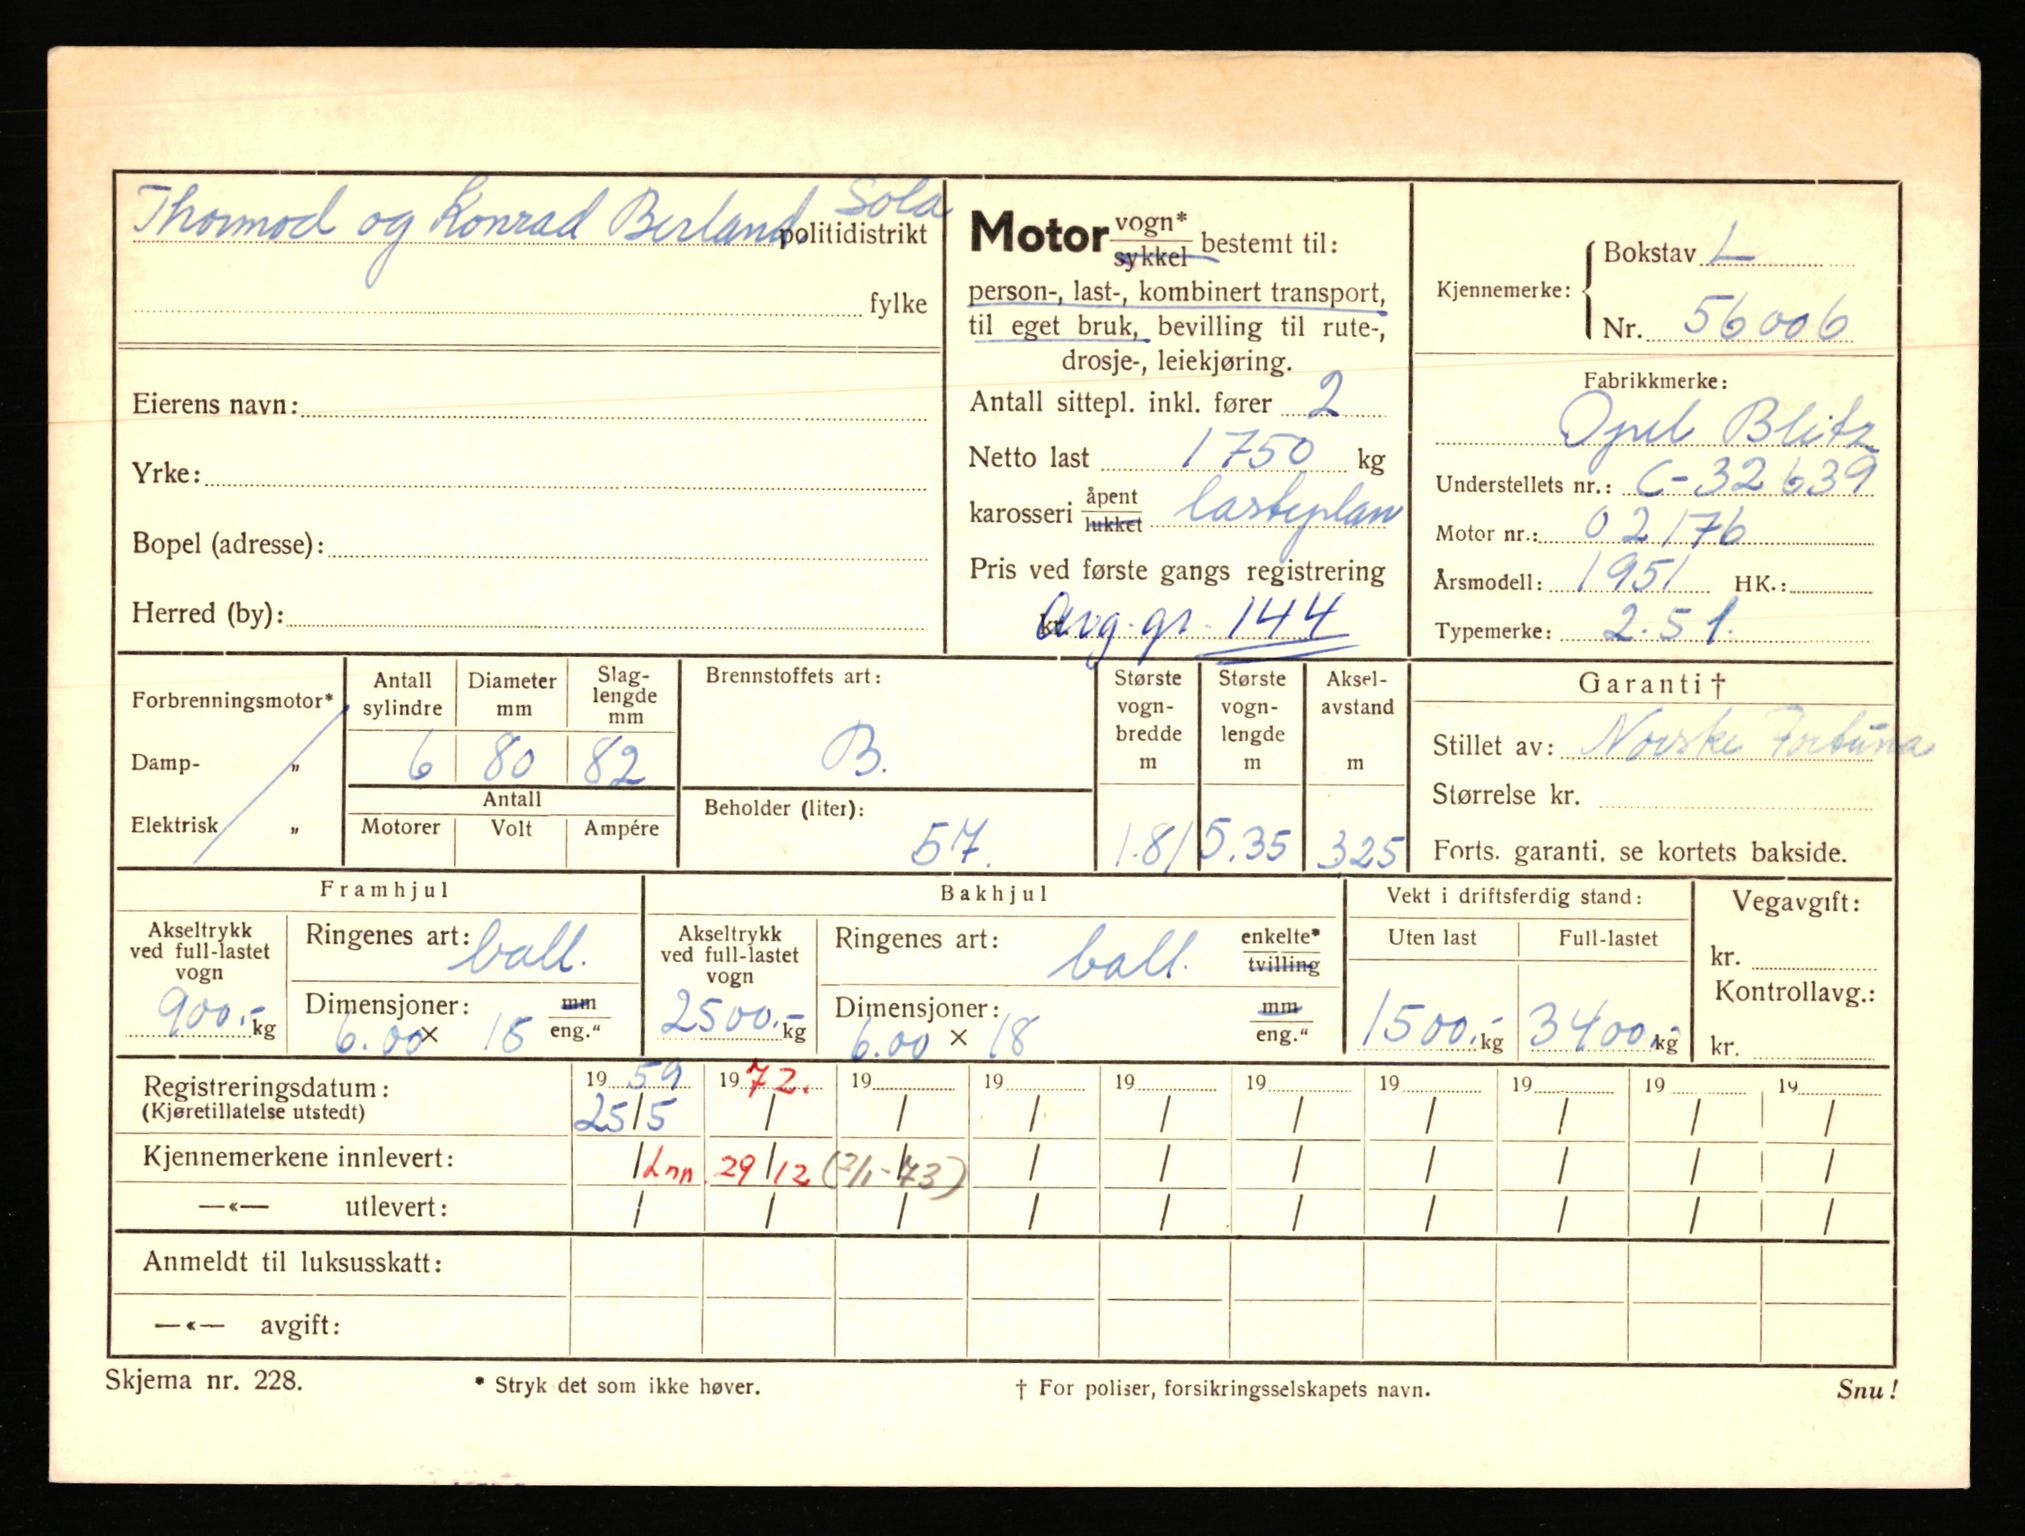 Thormod og Konrad Berland, Sola
politidistrikt
fylke
Eierens navn:
Yrke:
Bopel (adresse):
Herred (by):
Motor vogn* sykkel bestemt til:
person-, last-, kombinert transport,
til eget bruk, bevilling til rute-,
drosje-, leiekjøring.
Antall sittepl. inkl. fører 2
Netto last 1750 kg
karosseri åpent lukket lasteplan
Pris ved første gangs registrering
kr. Avg. gr. 144
Kjennemerke: Bokstav L
Nr. 56006
Fabrikkmerke:
Opel Blitz
Understellets nr.: C-32639
Motor nr.: 02176
Årsmodell: 1951 HK.:
Typemerke: 2.51.
Forbrenningsmotor*
Damp- „
Elektrisk „
Antall sylindre
Diameter mm
Slag-lengde mm
6 80 82
Antall
Motorer Volt Ampére
Brennstoffets art:
B.
Beholder (liter):
57.
Største vogn-bredde m
1.81
Største vogn-lengde m
5.35
Aksel-avstand m
325
Garanti †
Stillet av: Norske Fortuna
Størrelse kr.
Forts. garanti, se kortets bakside.
Framhjul
Akseltrykk ved full-lastet vogn
900,- kg
Ringenes art: ball.
Dimensjoner: mm eng."
6.00 x 18
Bakhjul
Akseltrykk ved full-lastet vogn
2500,- kg
Ringenes art: ball. enkelte* tvilling
Dimensjoner: mm eng."
6.00 x 18
Vekt i driftsferdig stand:
Uten last Full-lastet
1500,- kg 3400,- kg
Vegavgift:
kr.
Kontrollavg.:
kr.
Registreringsdatum: 19 59 19 72. 19 19 19 19 19 19 19 19
(Kjøretillatelse utstedt) 25/5 / / / / / / / / /
Kjennemerkene innlevert: / Inn 29/12 (2/1-73) / / / / / / /
—«— utlevert: / / / / / / / / / /
Anmeldt til luksusskatt:
—«— avgift:
Skjema nr. 228.
* Stryk det som ikke høver.
† For poliser, forsikringsselskapets navn.
Snu!